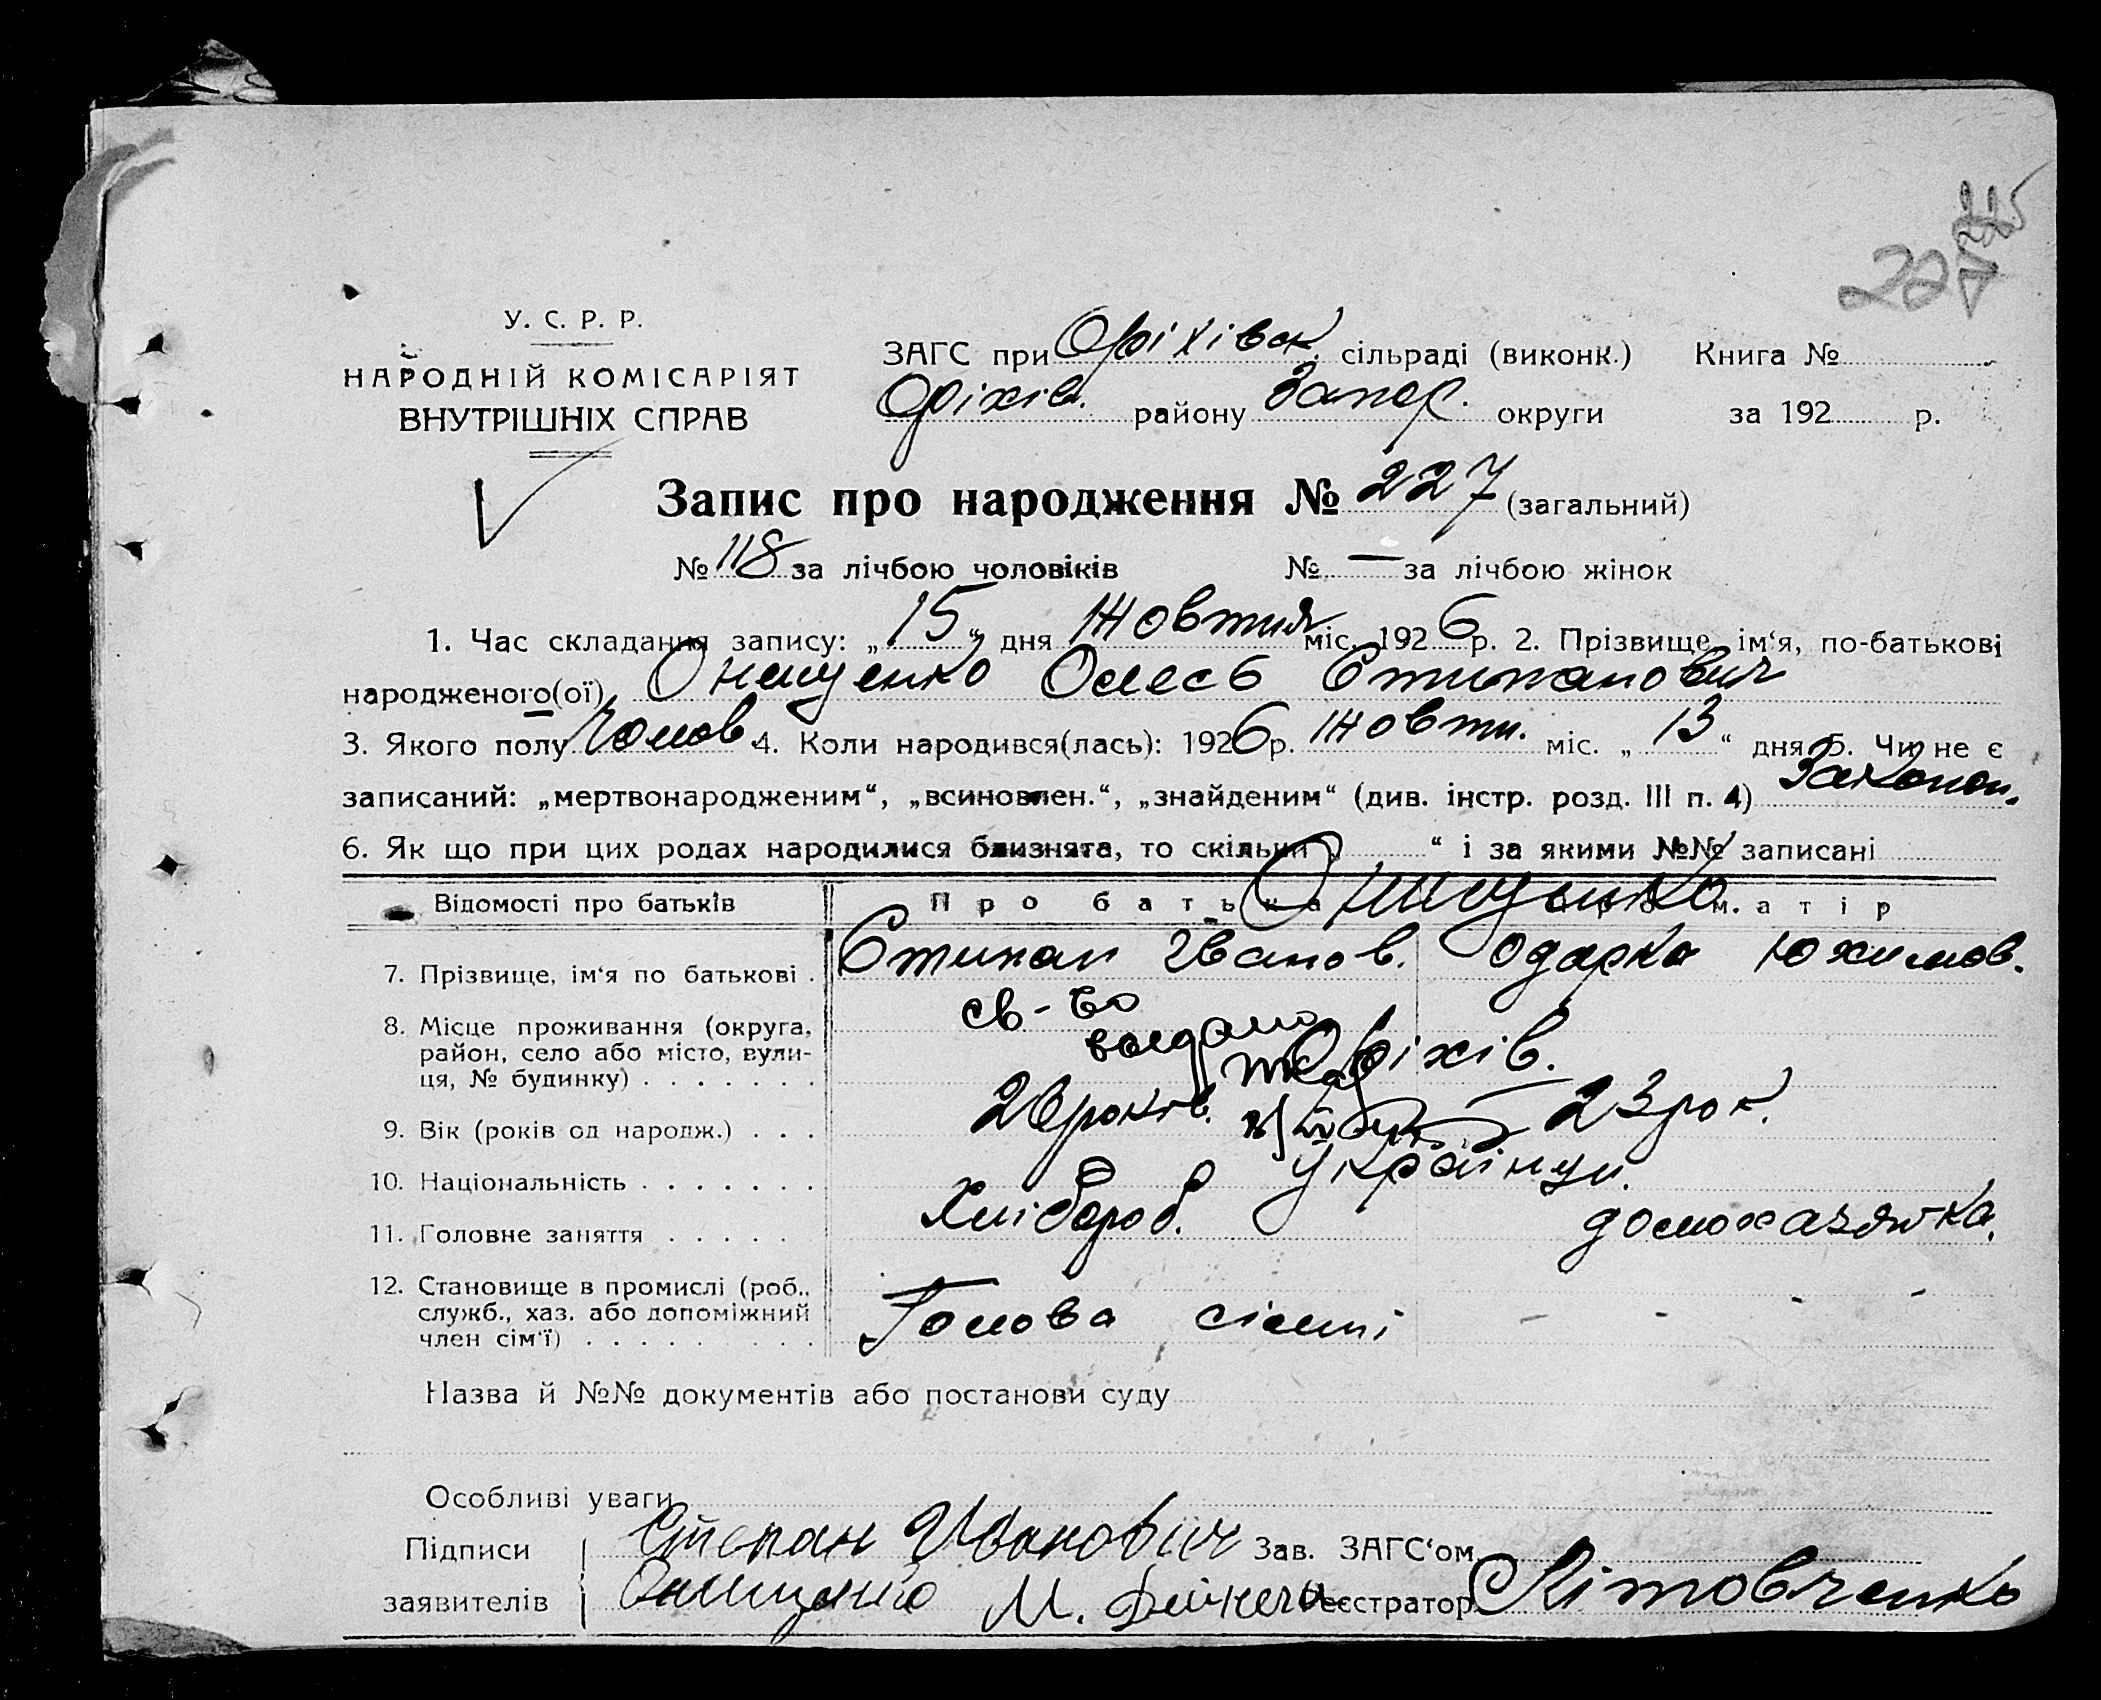 115
227
У. С. Р. Р.
НАРОДНІЙ КОМІСАРІЯТ
ВНУТРІШНІХ СПРАВ
ЗАГС при Оріхівск. сільраді (виконк.) Книга №
Оріхів. району Запор. округи за 192 р.
Запис про народження № 227 (загальний)
№ 118 за лічбою чоловіків № — за лічбою жінок
1. Час складання запису: „15“ дня Жовтня міс. 1926 р. 2. Прізвище, ім‘я, по-батькові
народженого(ої) Онищенко Олесь Стипанович
3. Якого полу Чолов. 4. Коли народився(лась): 1926 р. Жовтн. міс. „13“ дня 5. Чи не є
записаний: „мертвонародженим“, „всиновлен.“, „знайденим“ (див. інстр. розд. III п. 4) Законон.
6. Як що при цих родах народилися близнята, то скільки „ “ і за якими №№ записані
Відомості про батьків Про батька Онищенко Про матір
7. Прізвище, ім‘я по батькові . Стипан Іванов. Одарка Юхимов.
св-во
8. Місце проживання (округа,
район, село або місто, вули-
ця, № будинку) . . . . . . . Оріхів.
9. Вік (років од народж.) . . . років. 23 рок.
10. Національність . . . . . . . Українци.
11. Головне заняття . . . . . Хлібороб. домохазяйка.
12. Становище в промислі (роб.,
служб., хаз. або допоміжний
член сім‘ї) . . . . . . . . Голова сімьї - - - -
Назва й №№ документів або постанови суду
Особливі уваги
Підписи Степан Иванович Зав. ЗАГС‘ом
заявителів Онищенко М. Реєстратор Літовченко